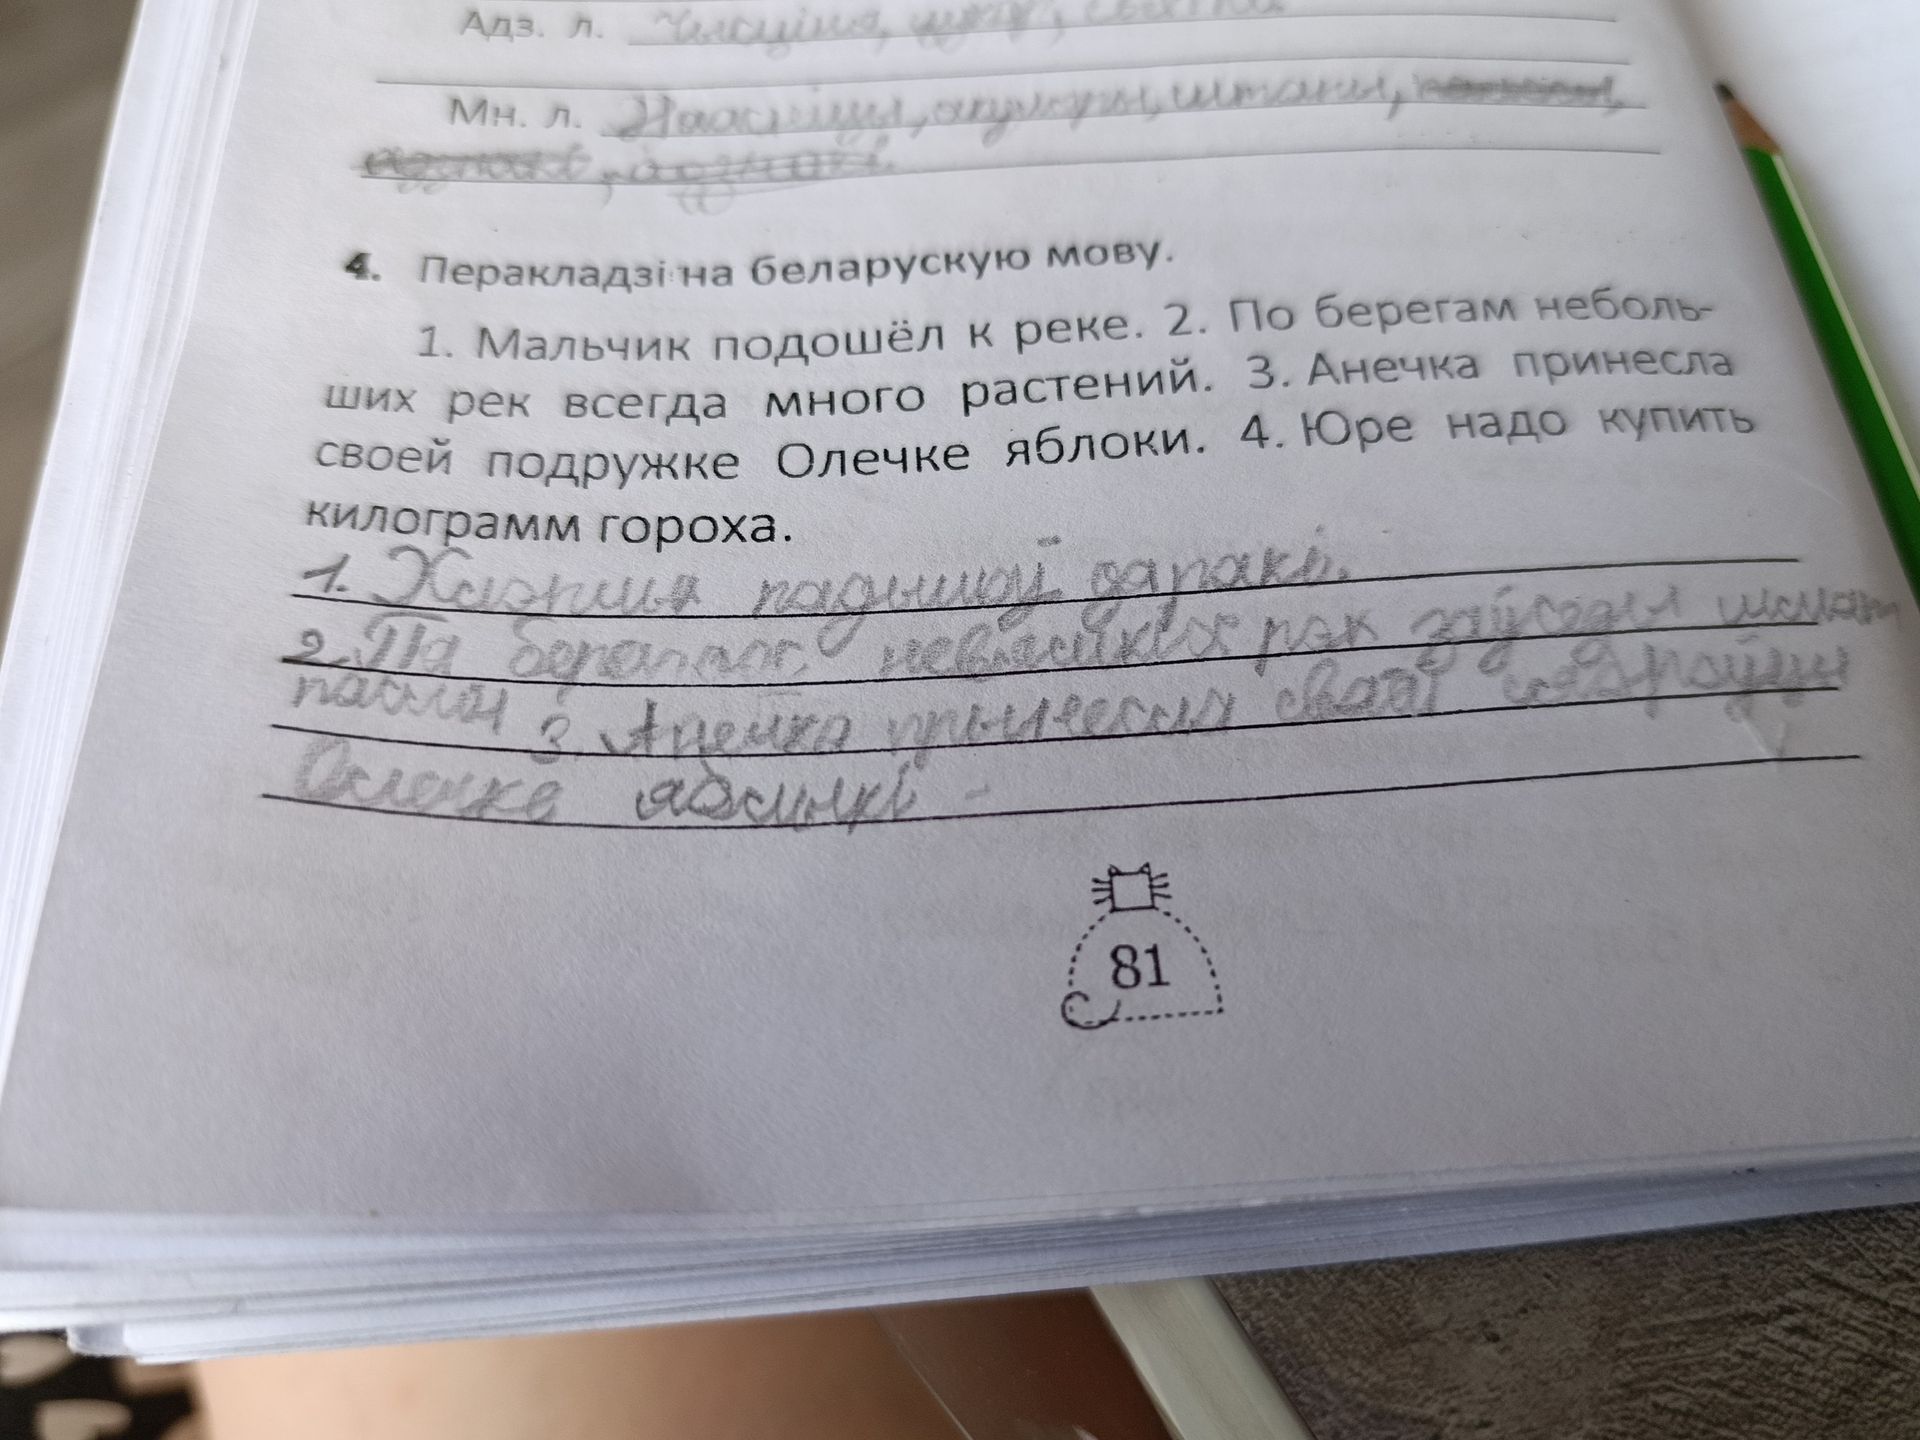 Адз. л.
Мн. л. штаны,
4. Перакладзі на беларускую мову.
1. Мальчик подошёл к реке. 2. По берегам неболь-
ших рек всегда много растений. 3. Анечка принесла
своей подружке Олечке яблоки. 4. Юре надо купить
килограмм гороха.
1. Хлопчык падышоў да ракі.
2. Па берагах невялікіх рэк заўсёды шмат
раслін 3. Анечка прынесла сваёй
яблыкі
81